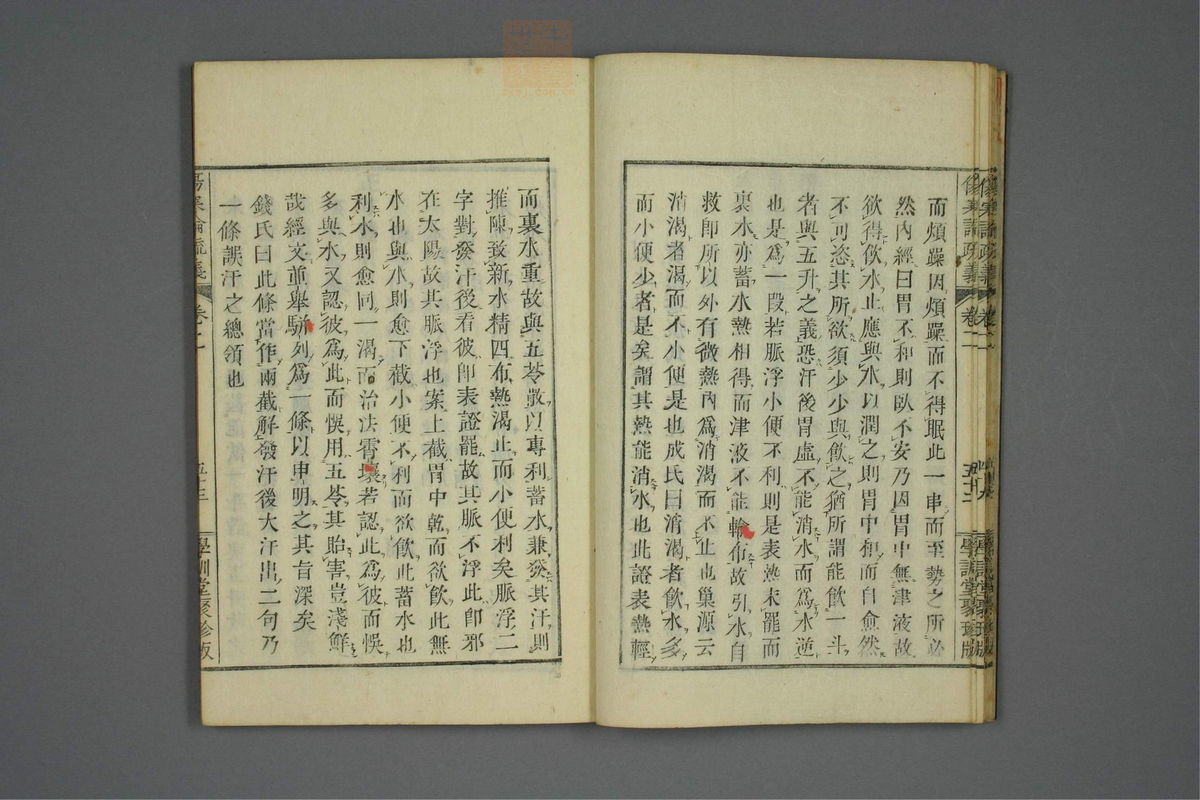 傷寒論疏義 卷二 五十二 學訓堂聚珍版
而煩躁因煩躁而不得眠此一串而至勢之所必
然內經曰胃不和則臥不安乃因胃中無津液故
欲得飲水止應與水以潤之則胃中和而自愈然
不可恣其所欲須少少與飲之猶所謂能飲一斗
者與五升之義恐汗後胃虛不能消水而爲水逆
也是爲一段若脈浮小便不利則是表熱未罷而
裏水亦蓄水熱相得而津液不能輸布故引水自
救即所以外有微熱內爲消渴而不止也巢源云
消渴者渴而不小便是也成氏曰消渴者飲水多
而小便少者是矣謂其熱能消水也此證表熱輕
而裏水重故與五苓散以專利蓄水兼發其汗則
推陳致新水精四布熱渴止而小便利矣脈浮二
字對發汗後看彼即表證罷故其脈不浮此即邪
在太陽故其脈浮也案上截胃中乾而欲飲此無
水也與水則愈下截小便不利而欲飲此蓄水也
利水則愈同一渴而治法霄壤若認此爲彼而悞
多與水又認彼爲此而悞用五苓其貽害豈淺鮮
哉經文並舉駢列爲一條以申明之其旨深矣
錢氏曰此條當作兩截解發汗後大汗出二句乃
一條誤汗之總領也
傷寒論疏義 卷二 五十三 學訓堂聚珍版